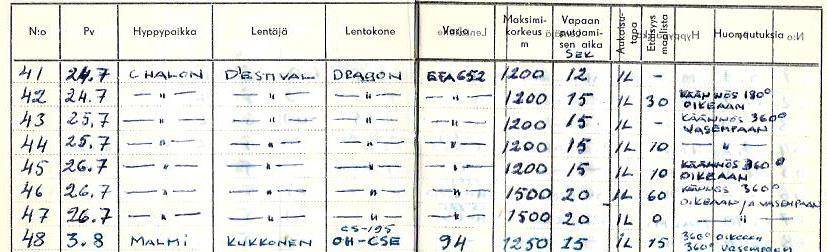 N:o Pv Hyppypaikka Lentäjä Lentokone Varjo Maksimikorkeus m Vapaan putoamisen aika SEK Aukaisutapa Etäisyys maalista Huomautuksia
41 24.7 CHALON DESTIVAL DRAGON EFA 652 1200 12 IL -
42 24.7 — " — — " — — " — — " — 1200 15 IL 30 KÄÄNNÖS 180° OIKEAAN
43 25.7 — " — — " — — " — — " — 1200 15 IL - KÄÄNNÖS 360° VASEMPAAN
44 25.7 — " — — " — — " — — " — 1200 15 IL 10 — " —
45 26.7 — " — — " — — " — — " — 1200 15 IL 10 KÄÄNNÖS 360° OIKEAAN
46 26.7 — " — — " — — " — — " — 1500 20 IL 60 KÄÄNNÖS 360° OIKEAAN JA VASEMPAAN
47 26.7 — " — — " — — " — — " — 1500 20 IL 0 — " —
48 3.8 MALMI KUKKONEN CS-195 OH-CSE 94 1250 15 IL 15 360° OIKEAAN 360° VASEMPAAN